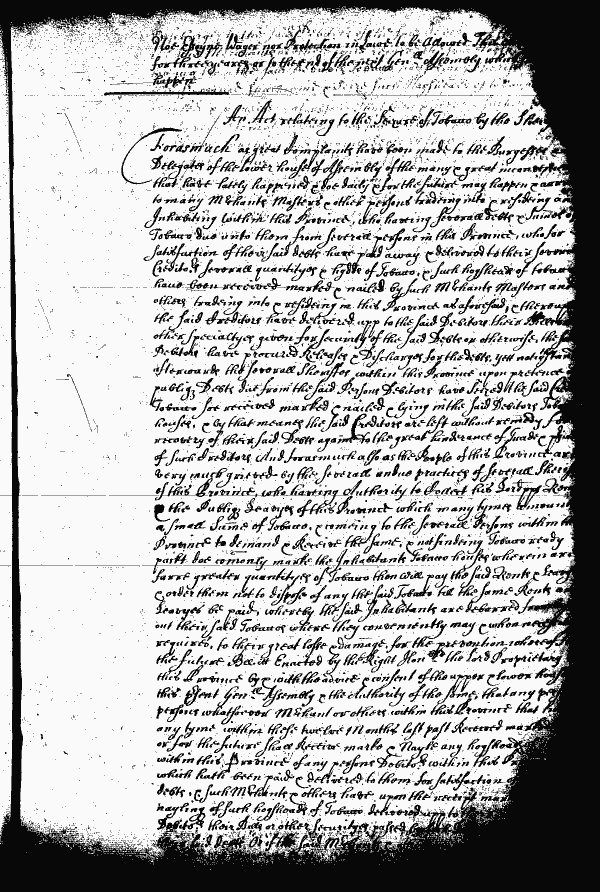 Noe Essoyne Wager nor Protection in Lawe to be Allowed This
for three yeares or to the end of the next Gen.ll Assembly which
happen
An Act relating to the Seizure of Tobacco by the Sher
Forasmuch as great Complaints have been made to the Burgesses a
Delegates of the lower house of Assembly of the many & great inconven
that have lately happened & doe daily & for the future may happen & arise
to many Mchants Masters & other persons tradeing into & resideing an
Inhabiting within this Province, who haveing severall debts & sumes of
Tobacco due unto them from severall persons in this Province, who for
satisfaction of their said debts have paid away & delivered to their severall
Creditors severall quantityes & hgdds of Tobacco, & such hogsheads of tobacco
have been received marked & nailed by such Mchants Masters and
others tradeing into & resideing in this Province as aforesaid, & thereup
the said Creditors have delivered upp to the said Debitors their
other specialtyes given for security of the said Debts or otherwise, the sd
Debitors have procured Releases & Discharges for the debts, yett notwithstand
afterwards the severall Sherriffes within this Province upon pretence
publiq Debts due from the said Persons Debitors have seized the said
Tobacco soe received marked & nailed & lying in the said Debitors Tob
houses, & by that meanes the said Creditors are left without remedy for
recovery of their said Debts againe to the great hinderance of Trade &
of such Creditors And forasmuch also as the People of this Province are
very much grieved by the severall undue practices of severall Sherr
of this Province, who haveing Authority to Collect his Lordpps Rents
& the Publiq Leavyes of this Province which many tymes amount
a small Sume of Tobacco, & comeing to the severall Persons within the
Province to demand & Receive the same, & not finding Tobacco ready
packt doe comonly marke the Inhabitants Tobacco houses wherein are
farre greater quantityes of Tobacco then will pay the said Rents & Leavy
& order them not to dispose of any the said Tobacco till the same Rents or
Leavyes be paid, whereby the said Inhabitants are deberred from
out their said Tobaccoes where they conveniently may & when
requires, to their great losse & damage, for the prevention whereof
the future Bee it Enacted by the Right Honble the Lord Proprietary
this Province by & with the advice & consent of the upper & lower hou
this present Genll Assembly & the Authority of the same, that any per
persons whatsoever Mchant or others within this Province that
any tyme within these twelve Months last past Received mark
or for the future shall Receive marke & Nayle any hogshead
within this Province of any persons Debitors within this P
which hath been paid & delivered to them for satisfaction
debts, & such Mchants & others have upon the receipt mar
nayling of such hogsheads of Tobacco delivered upp to
Debitors their Bills or other securityes passed